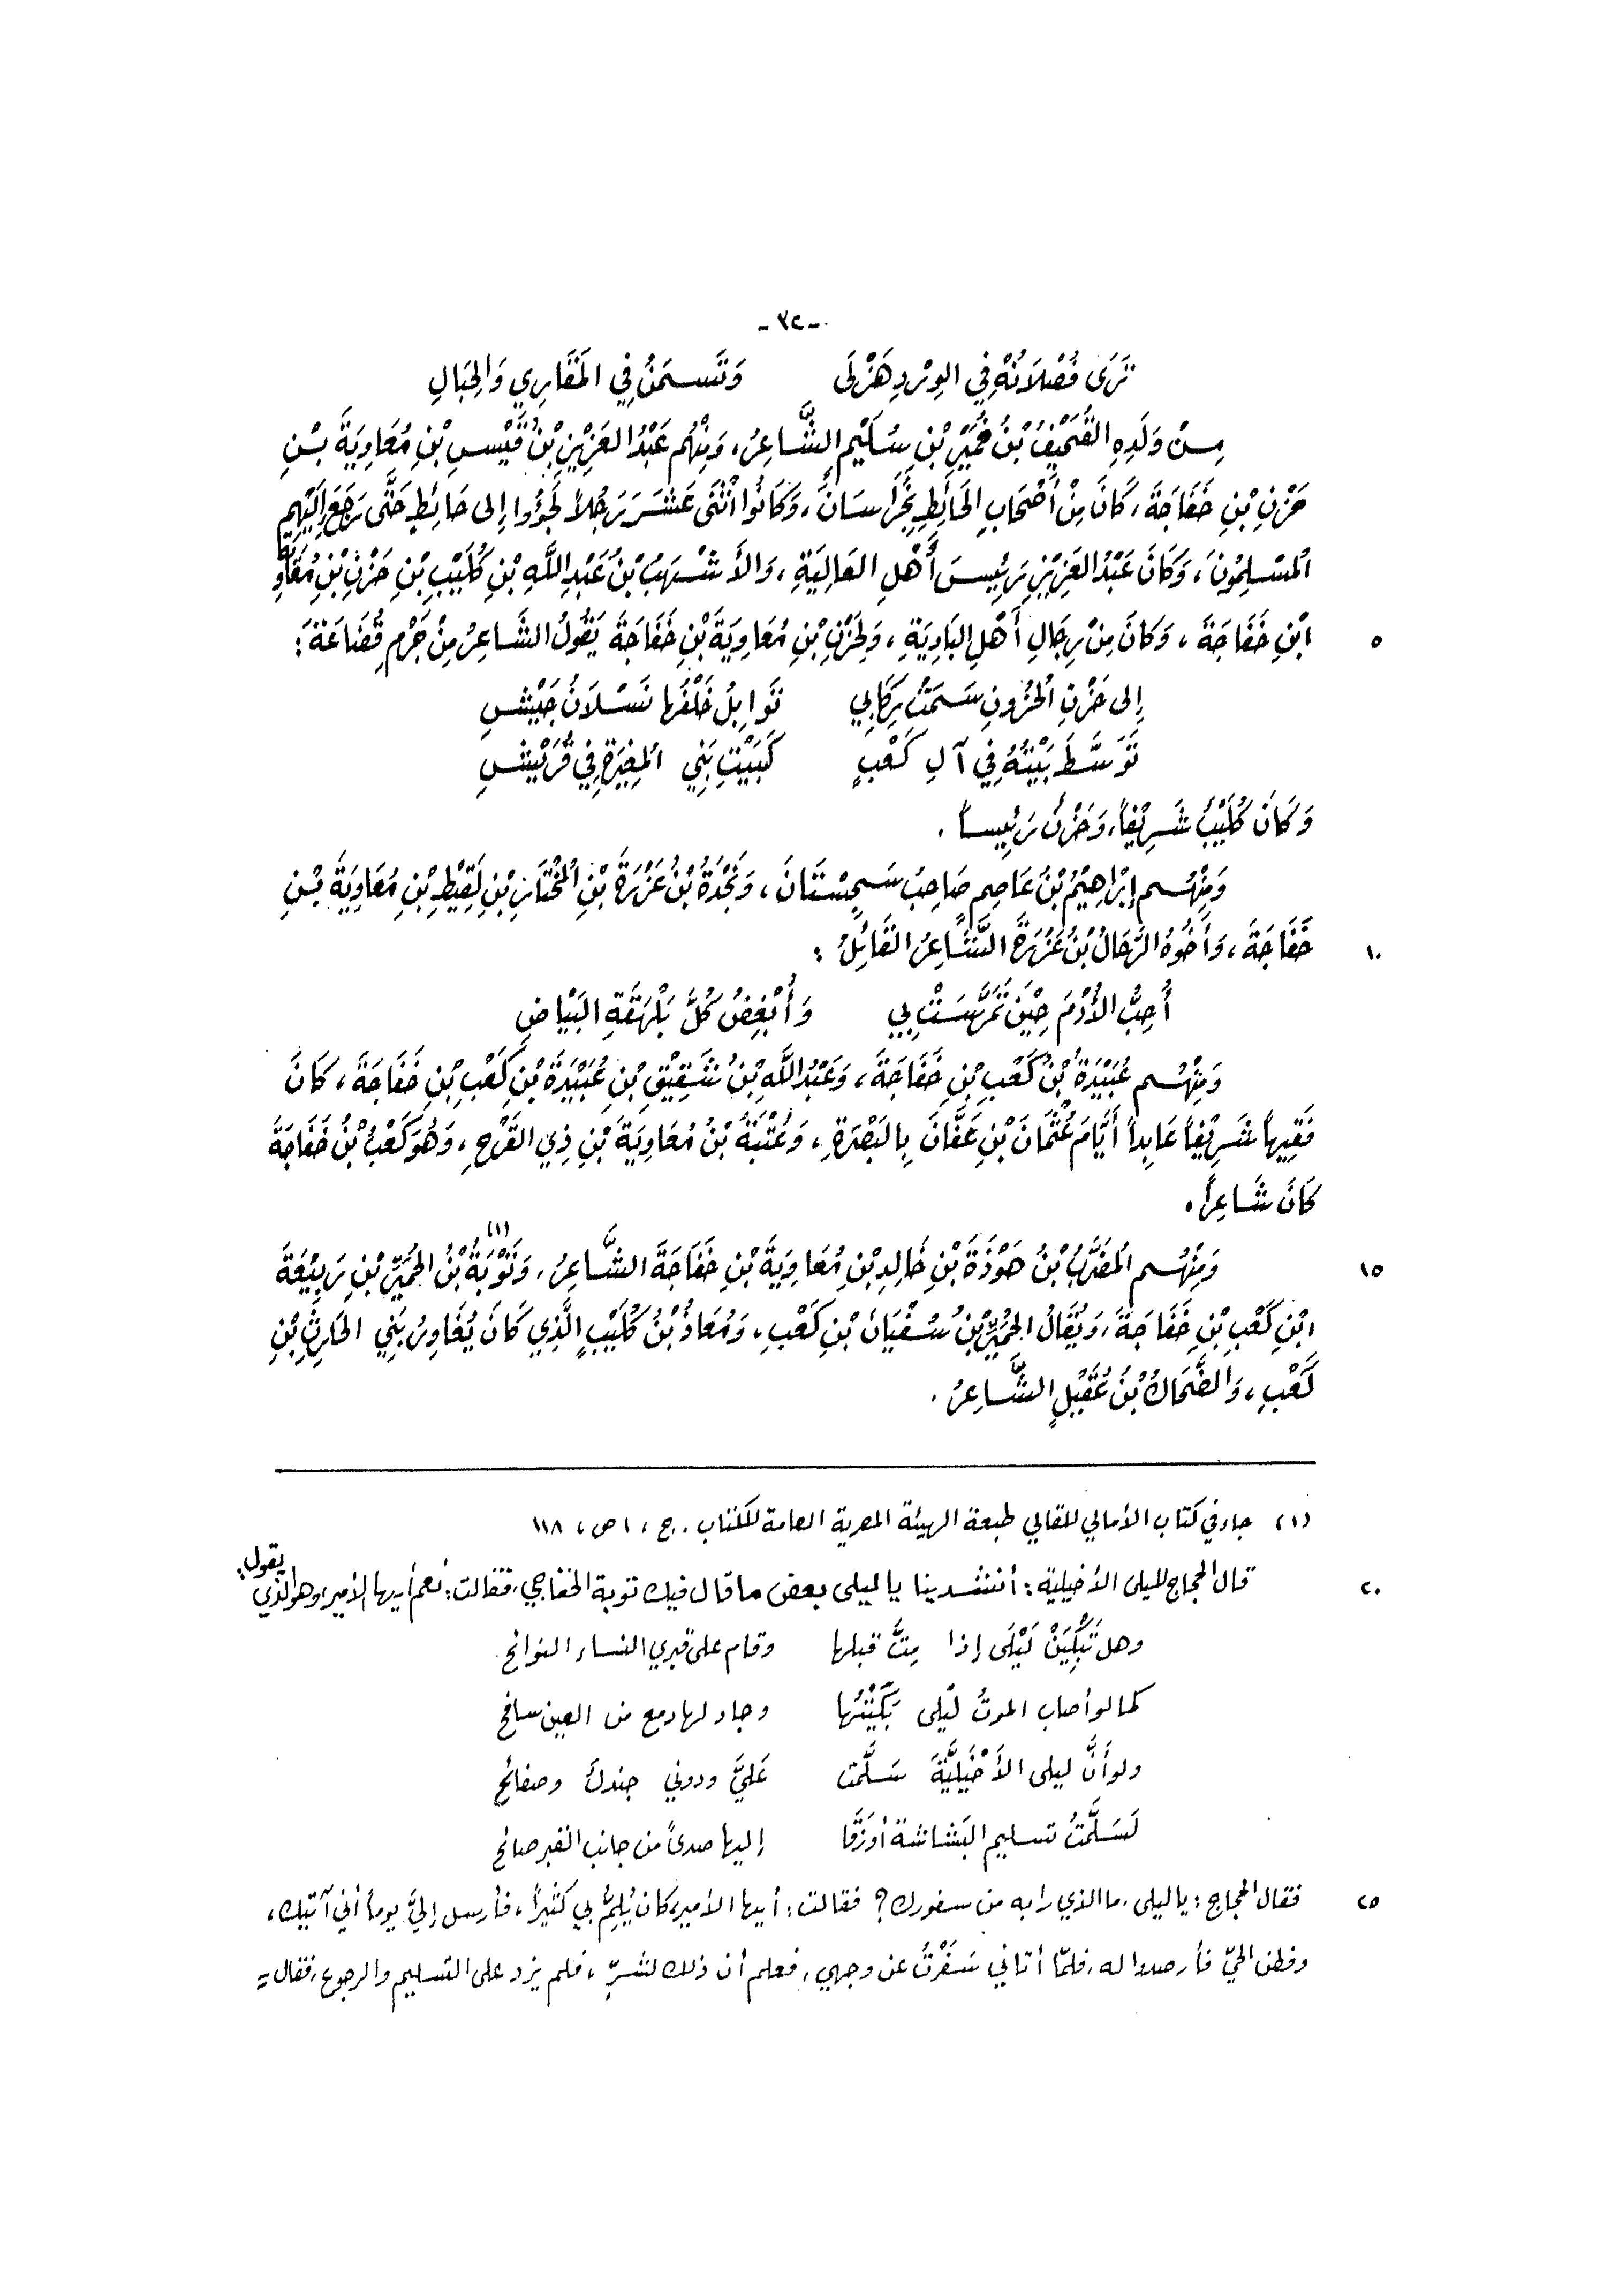 -٣٢-
تَرَى فُصْلَانَهُ فِي الوِرْدِ هَزْلَى وَتَسمَنُ فِي المَقَارِي وَالحِبَالِ
مِنْ وَلَدِهِ القُحَيْفُ بْنُ خُمَيِّرِ بْنِ سُلَيْمٍ الشَّاعِرُ، وَمِنْهُم عَبْدُ العَزِيْزِ بْنُ قَيْسِ بْنِ مُعَاوِيَةَ بْنِ
حَزْنِ بْنِ خَفَاجَةَ، كَانَ مِنْ أَصْحَابِ الحَائِطِ بِخُرَاسَانَ، وَكَانُوا اثْنَى عَشَرَ رَجُلاً لَجَؤُوا إِلى حَائِطٍ حَتَّى رَجَعَ إِلَيْهِم
المُسْلِمُونَ، وَكَانَ عَبْدُ العَزِيْزِ رَئِيسَ أَهْلِ العَالِيَةِ، وَالأَشْهَبُ بْنُ عَبْدِ اللَّهِ بْنِ كُلَيْبِ بْنِ حَزْنِ بْنِ مُعَاوِيَةَ
٥ ابْنِ خَفَاجَةَ، وَكَانَ مِنْ رِجَالِ أَهْلِ البَادِيَةِ، وَلِحَزْنِ بْنِ مُعَاوِيَةَ بْنِ خَفَاجَةَ يَقُولُ الشَّاعِرُ مِنْ جَرْمِ قُضَاعَةَ:
إِلى حَزْنِ الحُزُونِ سَمَتْ رِكَابِي نَوَابِلُ خَلْفَهَا نَسْلَانُ جَيْشِ
تَوَسَّطَ بَيْتُهُ فِي آلِ كَعْبٍ كَبَيْتِ بَنِي المُغِيْرَةِ فِي قُرَيْشِ
وَكَانَ كُلَيْبٌ شَرِيْفاً، وَحَزْنٌ رَئِيساً.
وَمِنْهُم إِبْرَاهِيْمُ بْنُ عَاصِمٍ صَاحِبُ سَجِسْتَانَ، وَنَجْدَةُ بْنُ عَزْرَةَ بْنِ المُخْتَارِ بْنِ لَقِيْطِ بْنِ مُعَاوِيَةَ بْنِ
١٠ خَفَاجَةَ، وَأَخُوهُ الرَّحَالُ بْنُ عَزْرَةَ الشَّاعِرُ القَائِلُ:
أُحِبُّ الأُدْمَ حِيْنَ تَمَرَّسَتْ بِي وَأُبْغِضُ كُلَّ بَلْهَقَةِ البَيْاضِ
وَمِنْهُم عُبَيْدَةُ بْنُ كَعْبِ بْنِ خَفَاجَةَ، وَعَبْدُ اللَّهِ بْنُ شَقِيْقِ بْنِ عُبَيْدَةَ بْنِ كَعْبِ بْنِ خَفَاجَةَ، كَانَ
فَقِيهاً شَرِيْفاً عَابِداً أَيَّامَ عُثْمَانَ بْنِ عَفَّانَ بِالبَصْرَةِ، وَعُتْبَةُ بْنُ مُعَاوِيَةَ بْنِ ذِي القَرْحِ، وَهُوَ كَعْبُ بْنُ خَفَاجَةَ
كَانَ شَاعِراً.
١٥ وَمِنْهُم المُضَرَّبُ بْنُ هَوْذَةَ بْنِ خَالِدِ بْنِ مُعَاوِيَةَ بْنِ خَفَاجَةَ الشَّاعِرُ، وَتَوْبَةُ (١) بْنُ الحُمَيِّرِ بْنِ رَبِيْعَةَ
ابْنِ كَعْبِ بْنِ خَفَاجَةَ، وَيُقَالُ الحُمَيِّرُ بْنُ سُفْيَانَ بْنِ كَعْبٍ، وَمُعَاذُ بْنُ كُلَيْبٍ الَّذِي كَانَ يُغَاوِرُ بَنِي الحَارِثِ بْنِ
كَعْبٍ، وَالضَّحَاكُ بْنُ عُقَيْلٍ الشَّاعِرُ.
(١) جاء في كتاب الأمالي للقالي طبعة الهيئة المصرية العامة للكتاب. ج، ١ ص، ١١٨
٢٠ قال الحجاج لليلى الأخيلية: أنشدينا يا ليلى بعض ما قال فيك توبة الخفاجي، فقالت: نعم أيها الأمير، وهو الذي يقول:
وهل تَبْكِيَنْ لَيْلَى إذا مِتُّ قبلها وقام على قبري النساء النوائح
كما لو أصاب الموتُ لَيْلى بَكَيْتُها وجاد لها دمع من العين سافح
ولو أنَّ ليلى الأَخْيَلِيَّةَ سَلَّمت عَليَّ ودوني جندلٌ وصفائح
لَسَلَّمْتُ تسليم البَشاشة أو زَقَا إليها صدىً من جانب القبر صائح
٢٥ فقال الحجاج: يا ليلى، ما الذي رابه من سفورك؟ فقالت: أيها الأمير، كان يُلِمُّ بي كثيراً، فأرسل إليَّ يوماً أني آتيك،
وفطن الحيّ فأرصدوا له، فلمّا أتاني سَفَرْتُ عن وجهي، فعلم أن ذلك لشرٍّ، فلم يزد على التسليم والرجوع، فقال =